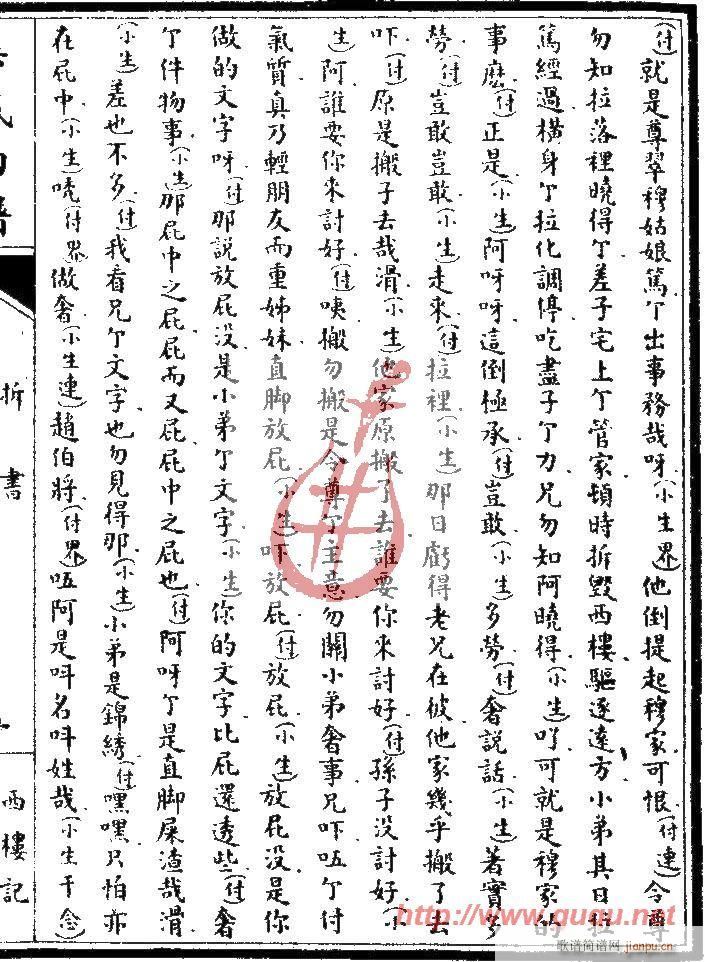 (付)就是尊翠穆姑娘篤丫出事務哉呀(小生界)他倒提起穆家可恨(付連)令尊
勿知拉落裡曉得丫差子宅上丫管家頓時拆毀西樓驅逐遠方小弟其日拉
篤經過橫身丫拉化調停吃盡子丫力兄勿知阿曉得(小生)吖可就是穆家的
事麽(付)正是(小生)阿呀呀這倒極承(付)豈敢(小生)多勞(付)奢說話(小生)著實多
勞(付)豈敢豈敢(小生)走來(付)拉裡(小生)那日虧得老兄在彼他家幾乎搬了去
吓(付)原是搬子去哉滑(小生)他家原搬了去誰要你來討好(付)孫子没討好(小
生)阿誰要你來討好(付)咦搬勿搬是令尊丫主意勿關小弟奢事兄吓㕶丫付
氣質真乃輕朋友而重姊妹直脚放屁(小生)吓放屁(付)放屁(小生)放屁没是你
做的文字呀(付)那說放屁没是小弟丫文字(小生)你的文字比屁還透些(付)奢
丫件物事(小生)那屁中之屁屁而又屁屁中之屁也(付)阿呀丫是直脚屎渣哉滑
(小生)差也不多(付)我看兄丫文字也勿見得那(小生)小弟是錦綉(付)嘿嘿只怕亦
在屁中(小生)唗(付界)做奢(小生連)趙伯將(付界)㕶阿是呌名呌姓哉(小生干念)
拆書
西樓記
http://www.guqu.net
歌谱简谱网
jianpu.cn